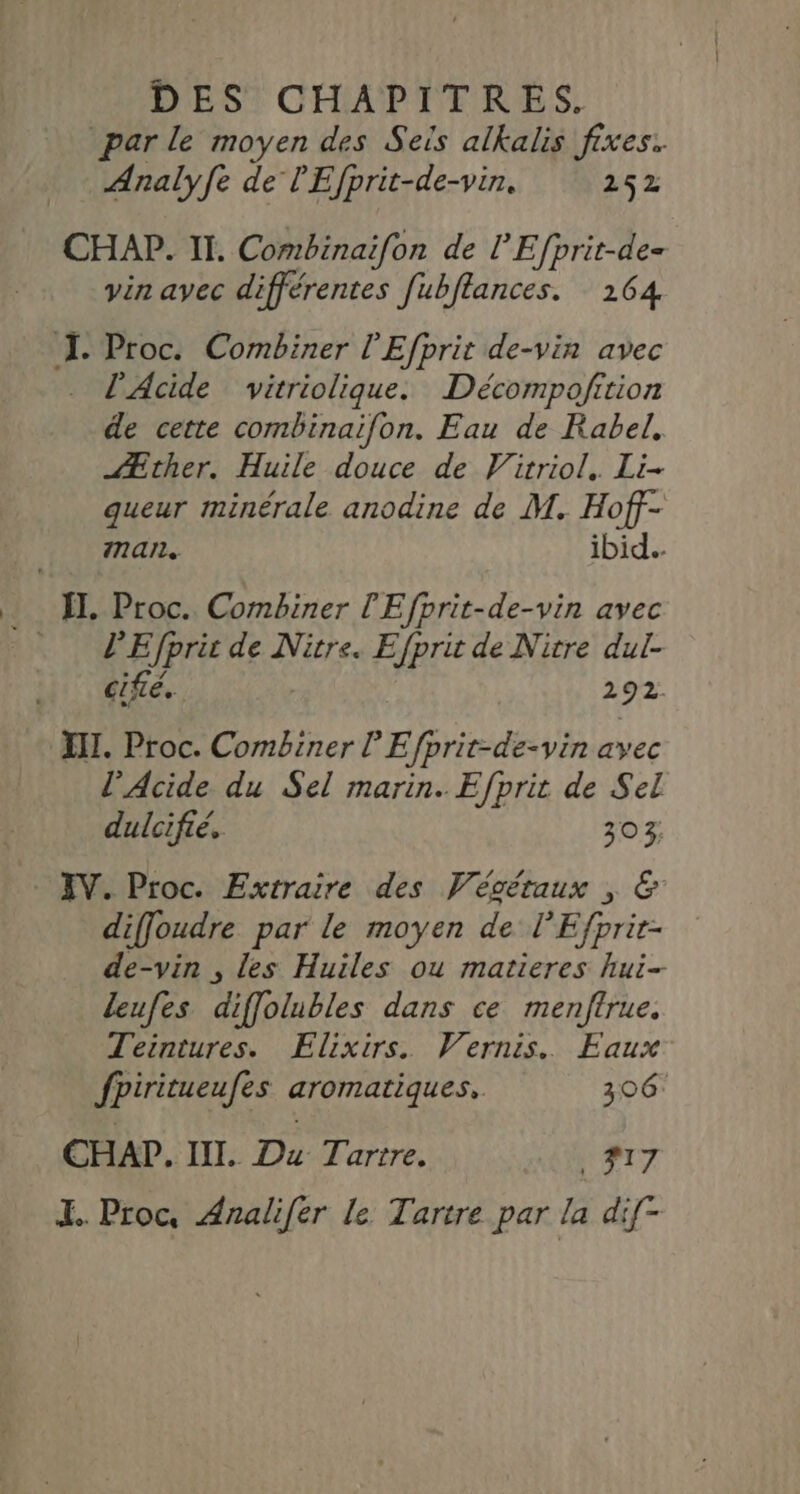 DES CHAPITRES.
par le moyen des Sels alkalis fixes.
Analyſe de l'Eſprit-de-vin. 252
CHAP. II. Combinaiſon de l'Eſprit-de-
vin avec différentes ſubſtances. 264
I. Proc. Combiner l'Eſprit de-vin avec
l'Acide vitriolique. Décompoſition
de cette combinaiſon. Eau de Rabel.
Æther. Huile douce de Vitriol. Li-
queur minérale anodine de M. Hoff-
man. ibid.
II. Proc. Combiner l'Eſprit-de-vin avec
l'Eſprit de Nitre. Eſprit de Nitre dul-
cifié. 292
III. Proc. Combiner l'Eſprit-de-vin avec
l'Acide du Sel marin. Eſprit de Sel
dulcifié. 303
IV. Proc. Extraire des Végétaux , &
diſſoudre par le moyen de l'Eſprit-
de-vin , les Huiles ou matieres hui-
leuſes diſſolubles dans ce menſtrue.
Teintures. Elixirs. Vernis. Eaux
ſpiritueuſes aromatiques. 306
CHAP. III. Du Tartre. 317
I. Proc. Analiſer le Tartre par la diſ-